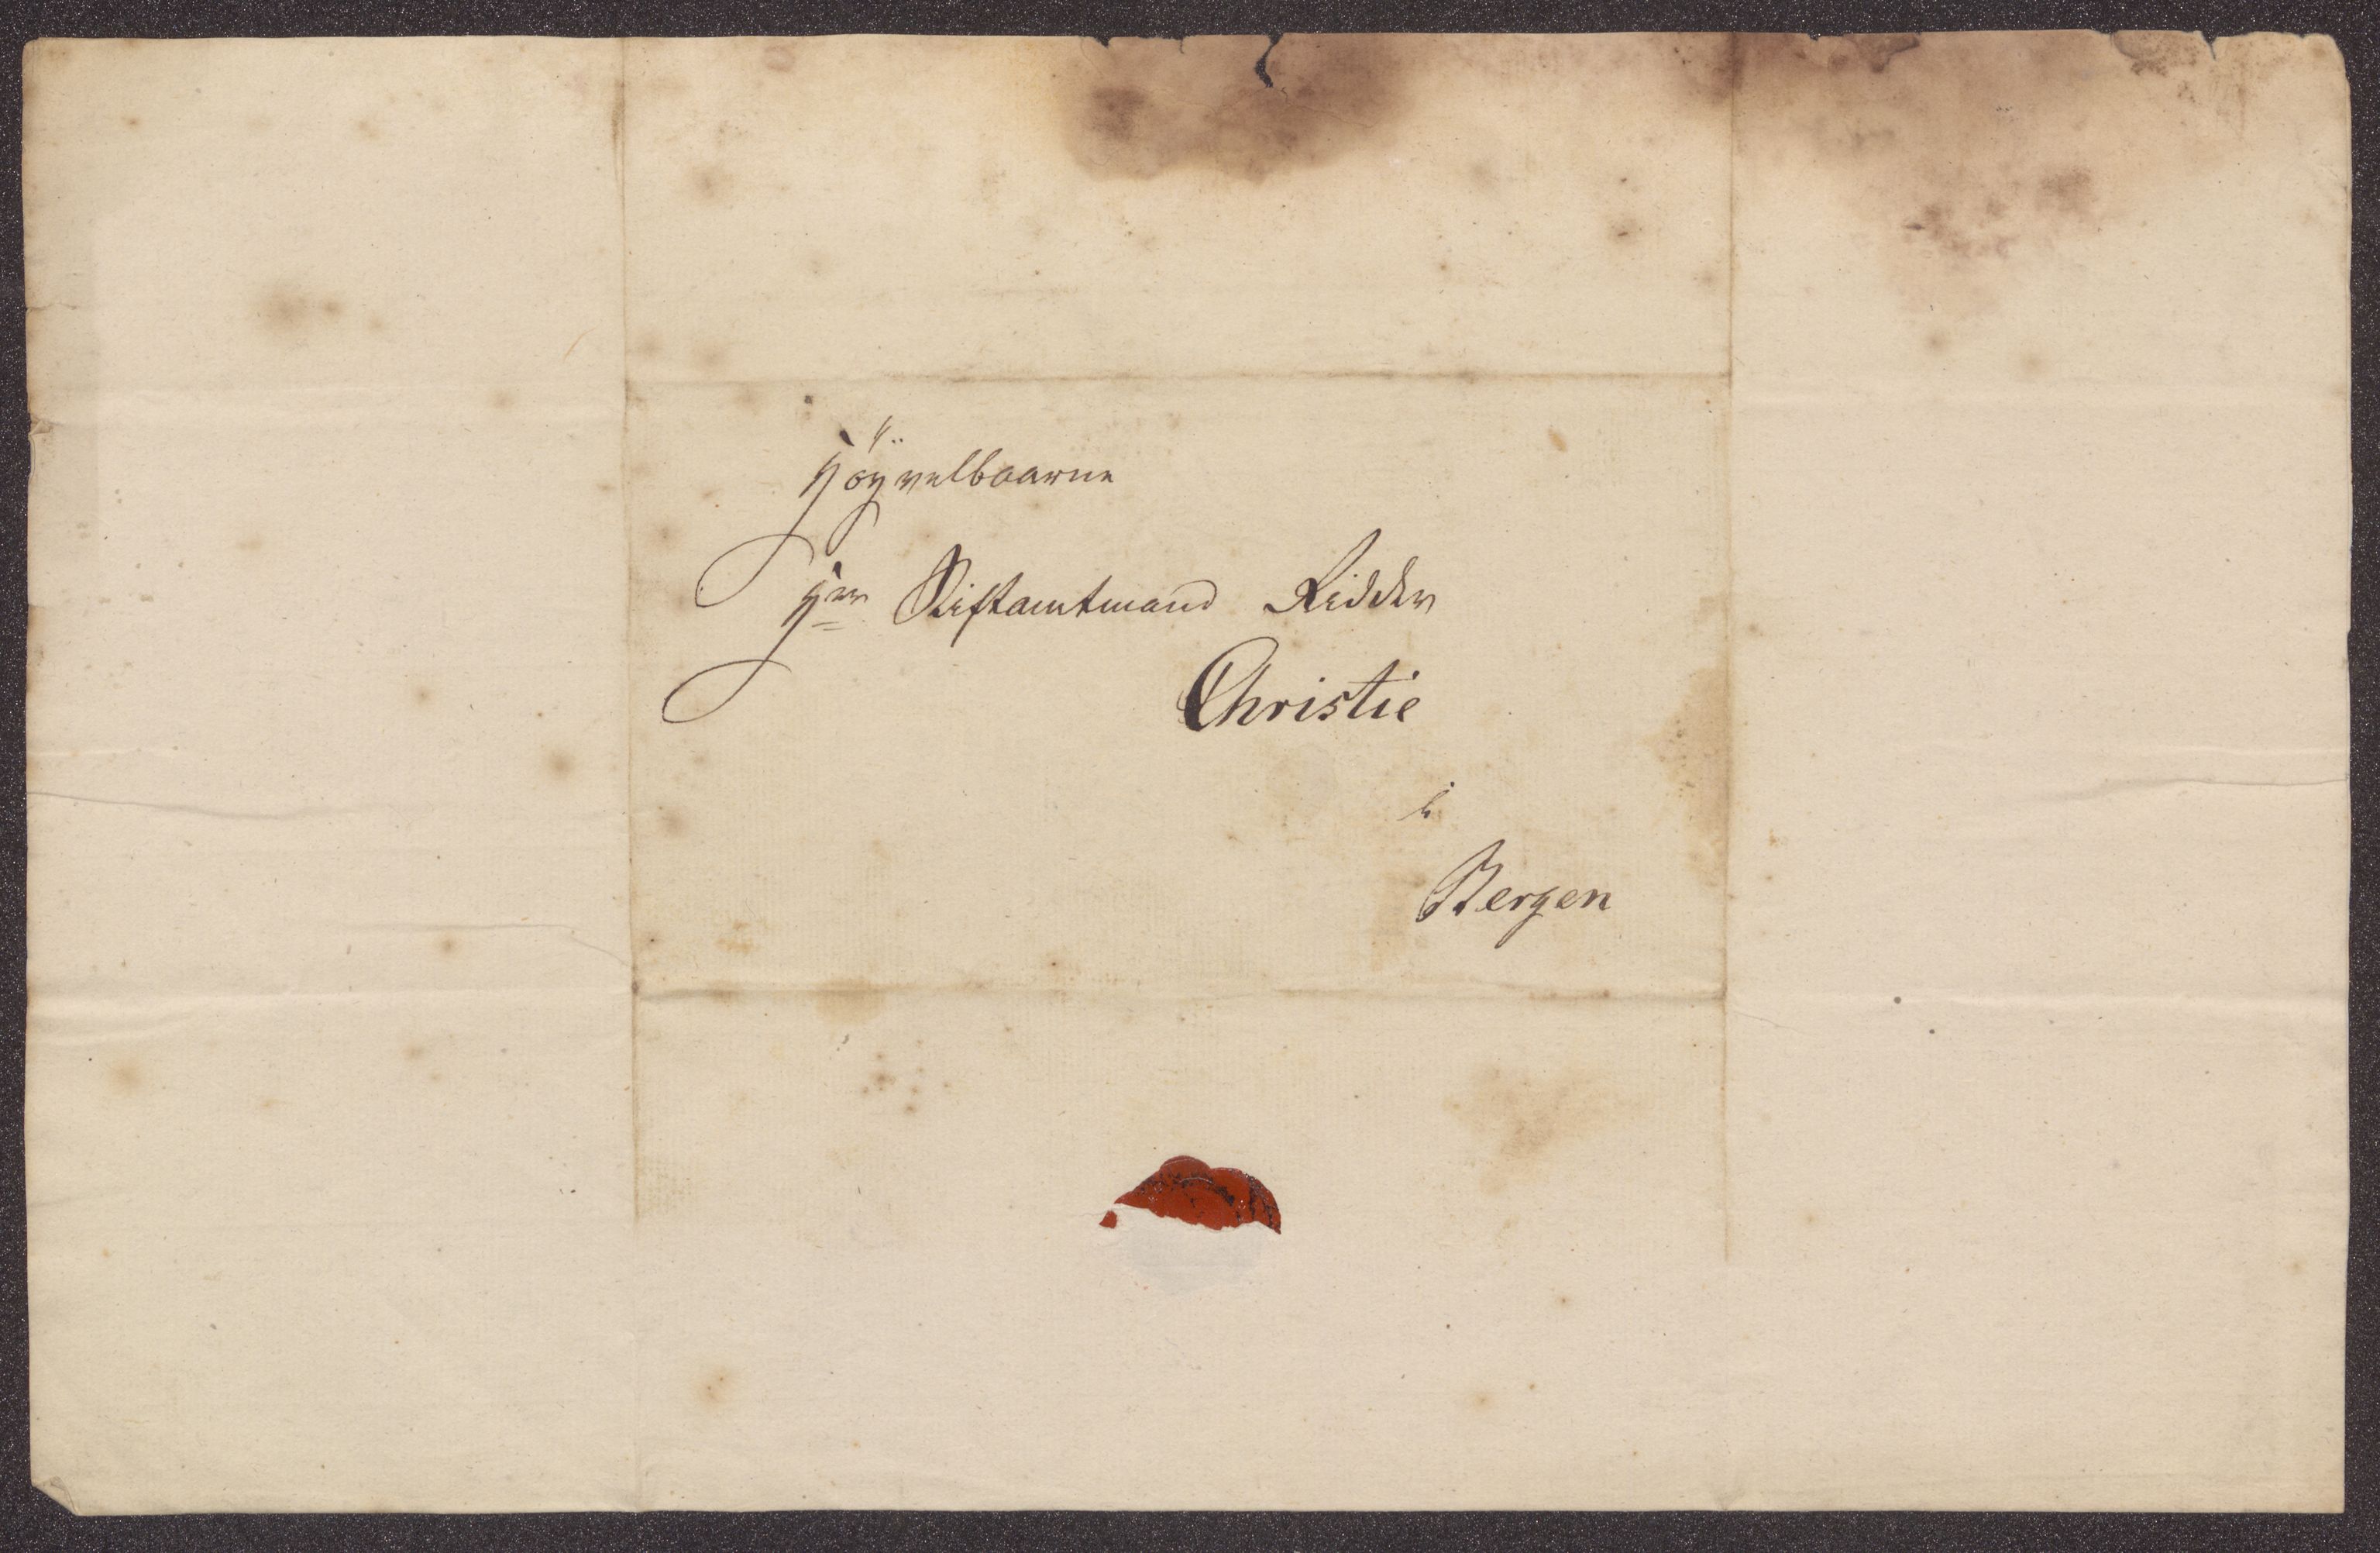 Høyvelbaarne
Hrr Stiftamtmand Ridder
Christie
i
Bergen